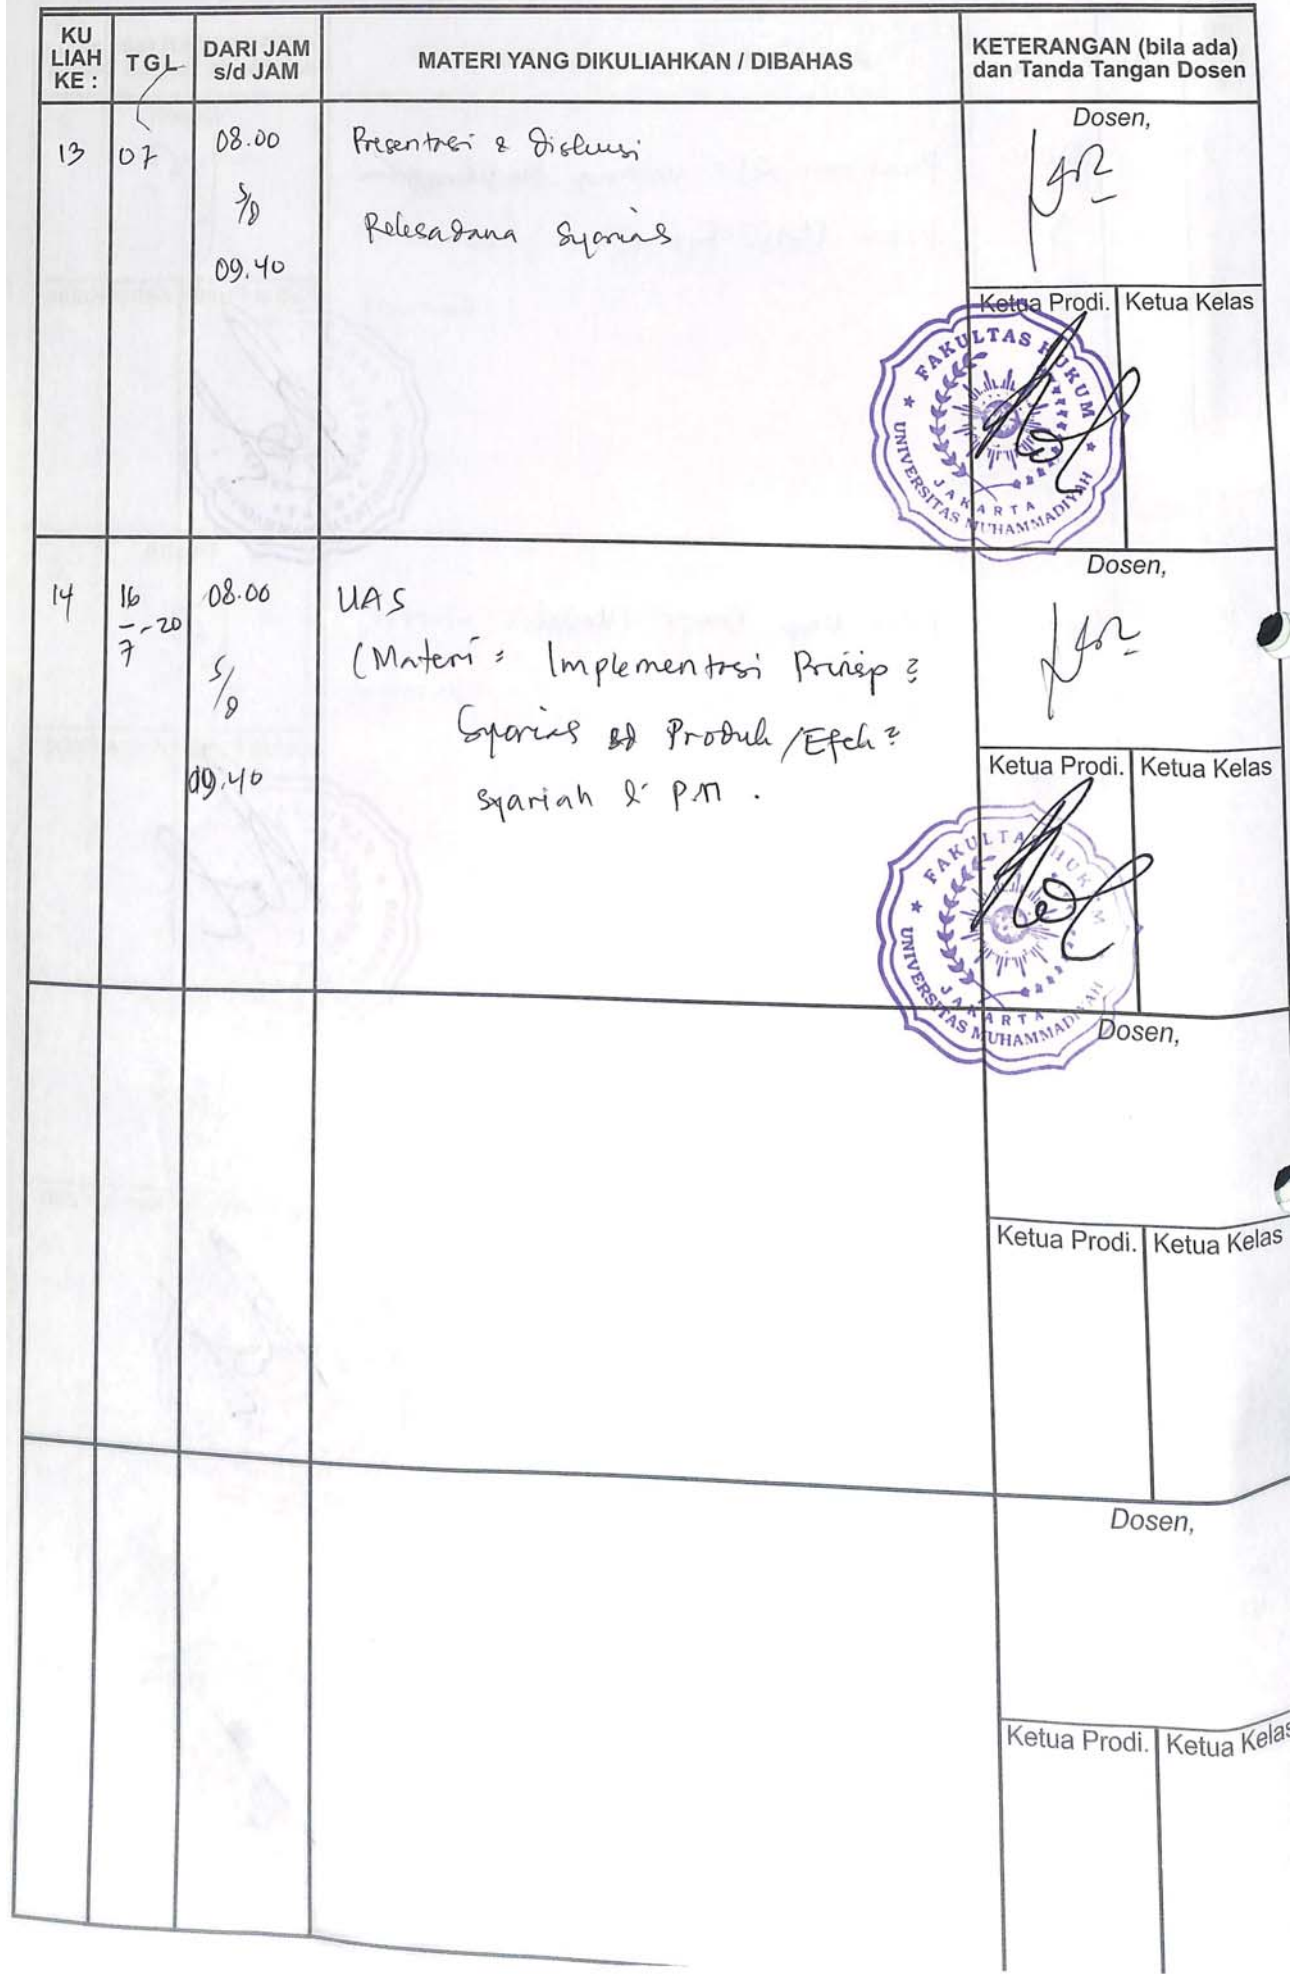 KU LIAH KE :
TGL
DARI JAM s/d JAM
MATERI YANG DIKULIAHKAN / DIBAHAS
KETERANGAN (bila ada) dan Tanda Tangan Dosen
13
07
08.00
s/d
09.40
Presentasi & Diskusi
Reksadana Syariah
Dosen,
Ketua Prodi.
Ketua Kelas
FAKULTAS HUKUM
UNIVERSITAS MUHAMMADIYAH
JAKARTA
14
16
7 -20
08.00
s/d
09.40
UAS
(Materi : Implementasi Prinsip2
Syariah Produk/Efek2
syariah di PM .
Dosen,
Ketua Prodi.
Ketua Kelas
FAKULTAS HUKUM
UNIVERSITAS MUHAMMADIYAH
JAKARTA
Dosen,
Ketua Prodi.
Ketua Kelas
Dosen,
Ketua Prodi.
Ketua Kelas